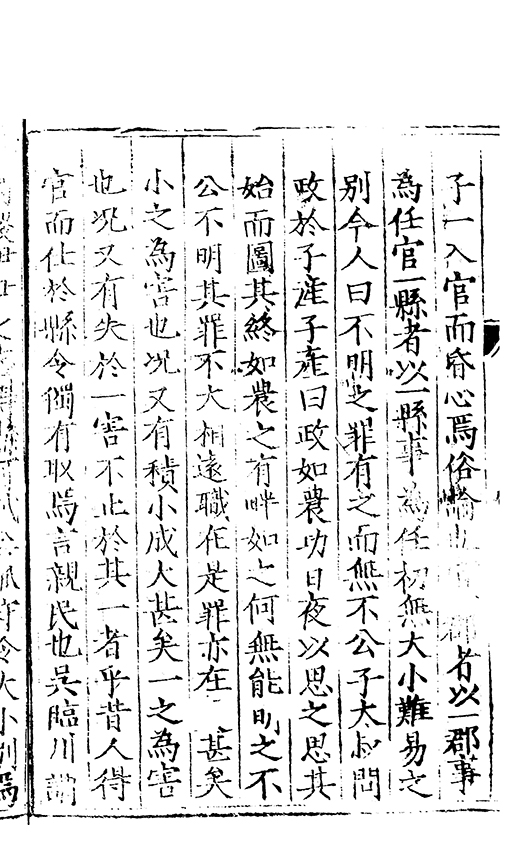 子一入官而昏心焉俗論 者以一郡事
為任官一縣者以一縣事為任初無大小難易之
別今人曰不明之罪有之而無不公子太叔問
政於子產子產曰政如農功日夜以思之思其
始而圖其終如農之有畔如之何無能明之不
公不明其罪不大相遠職在是罪亦在 甚矣
小之為害也况又有積小成大甚矣一之為害
也况又有失於一害不止於其一者乎昔人得
官而仕於縣令獨有取焉言親民也吳臨川謂
守令大小别焉